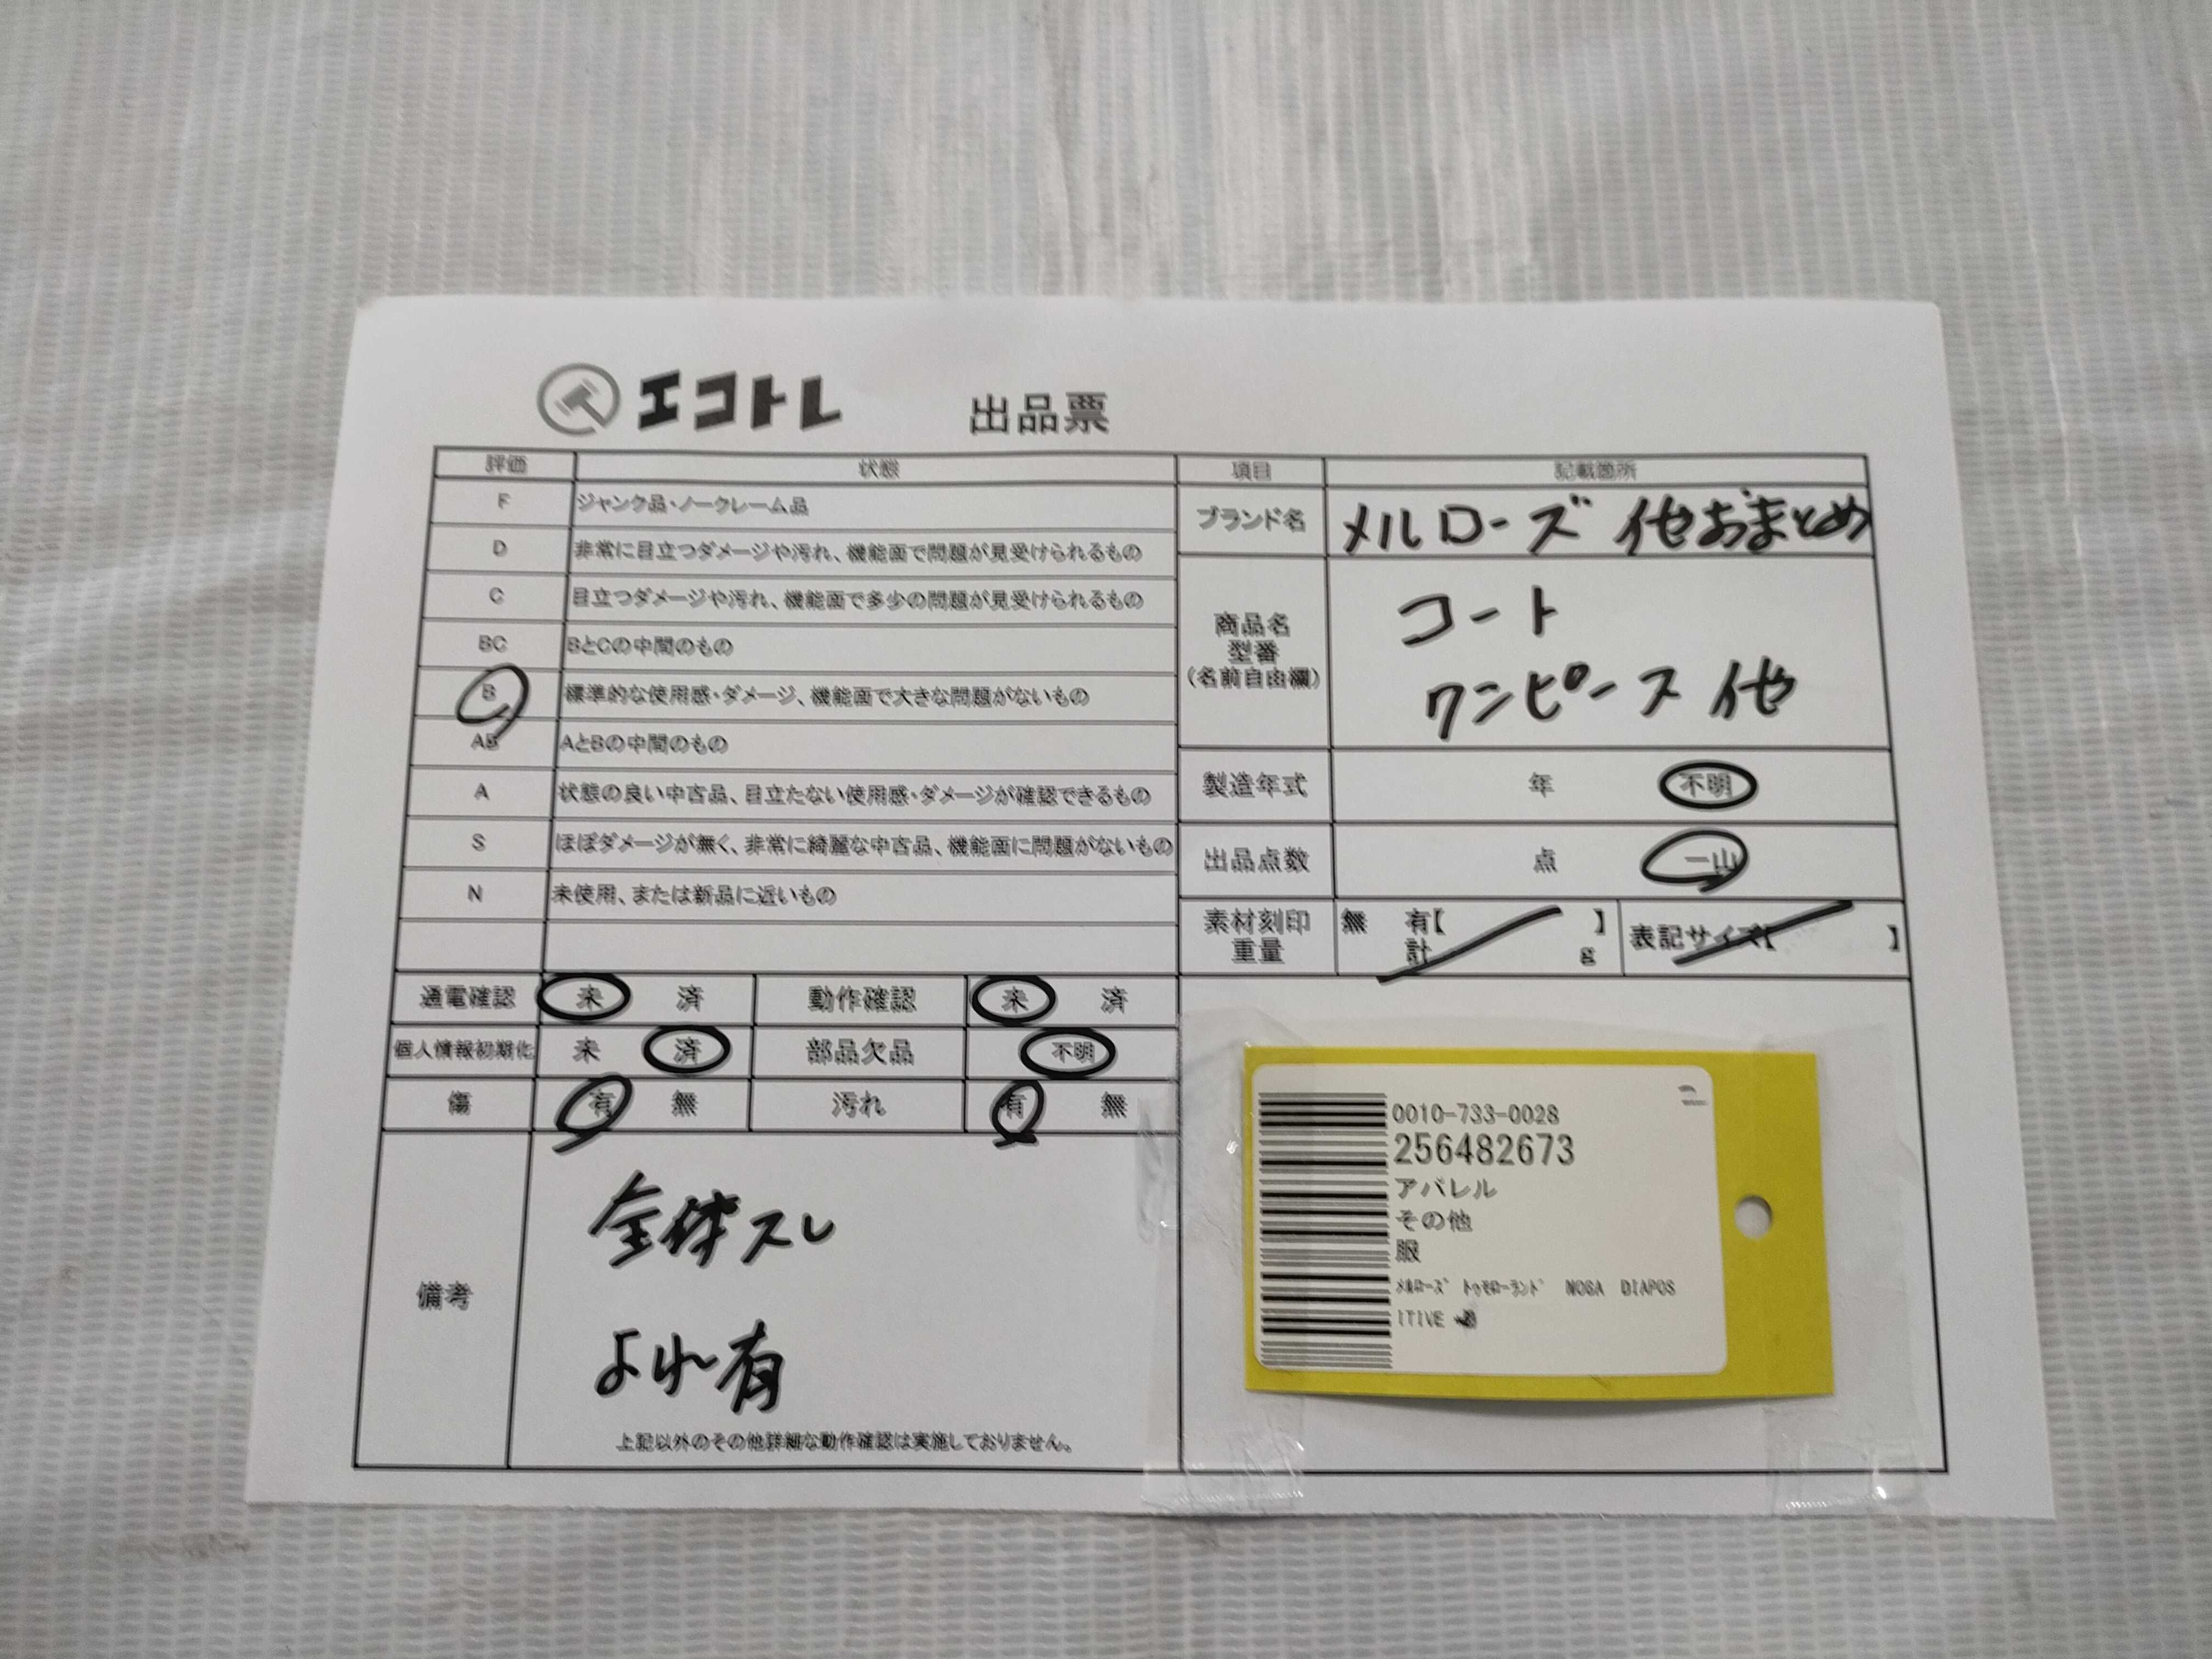 エコトレ 出品票
評価 状態 項目 記載箇所
F ジャンク品・ノークレーム品
D 非常に目立つダメージや汚れ、機能面で問題が見受けられるもの
C 目立つダメージや汚れ、機能面で多少の問題が見受けられるもの
BC BとCの中間のもの
B 標準的な使用感・ダメージ、機能面で大きな問題がないもの
AB AとBの中間のもの
A 状態の良い中古品、目立たない使用感・ダメージが確認できるもの
S ほぼダメージが無く、非常に綺麗な中古品、機能面に問題がないもの
N 未使用、または新品に近いもの
ブランド名 メルローズ 他おまとめ
商品名
型番
(名前自由欄)
コート
ワンピース 他
製造年式 年 不明
出品点数 点 一山
素材刻印 無 有【 】
重量 計 g
表記サイズ【 】
通電確認 未 済 動作確認 未 済
個人情報初期化 未 済 部品欠品 不明
傷 有 無 汚れ 有 無
備考
全体スレ
よれ有
上記以外のその他詳細な動作確認は実施しておりません。
0010-733-0028
256482673
アパレル
その他
服
ﾒﾙﾛｰｽﾞ ﾄｩﾓﾛｰﾗﾝﾄﾞ NOSA DIAPOS
ITIVE